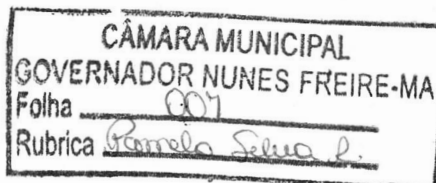 CÂMARA MUNICIPAL
GOVERNADOR NUNES FREIRE-MA
Folha 007
Rubrica Pamela Silva L.